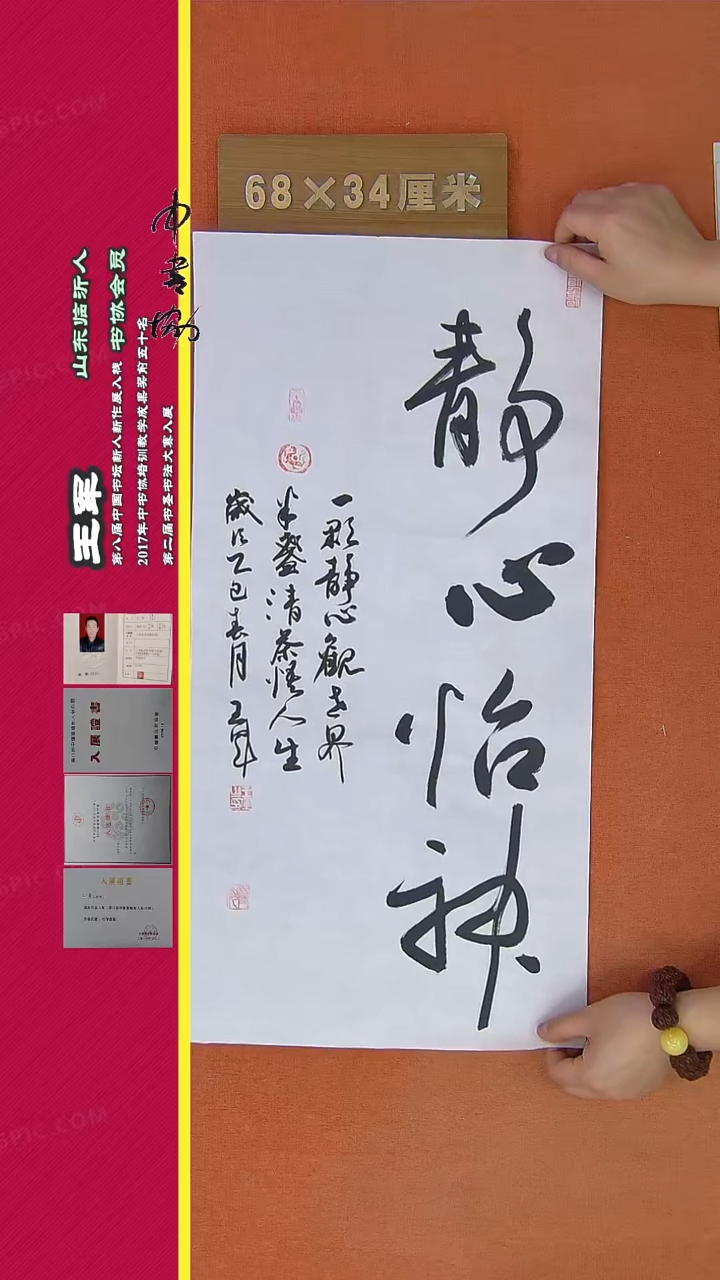 68×34厘米
静心怡神
一颗静心观世界
半盏清茶悟人生
歲次乙巳春月 王军
中书协
山东临沂人 书协会员
王军
第八届中国书坛新人新作展入展
2017年中书协培训教学成果奖前五十名
第二届书圣书法大赛入展
入展證書